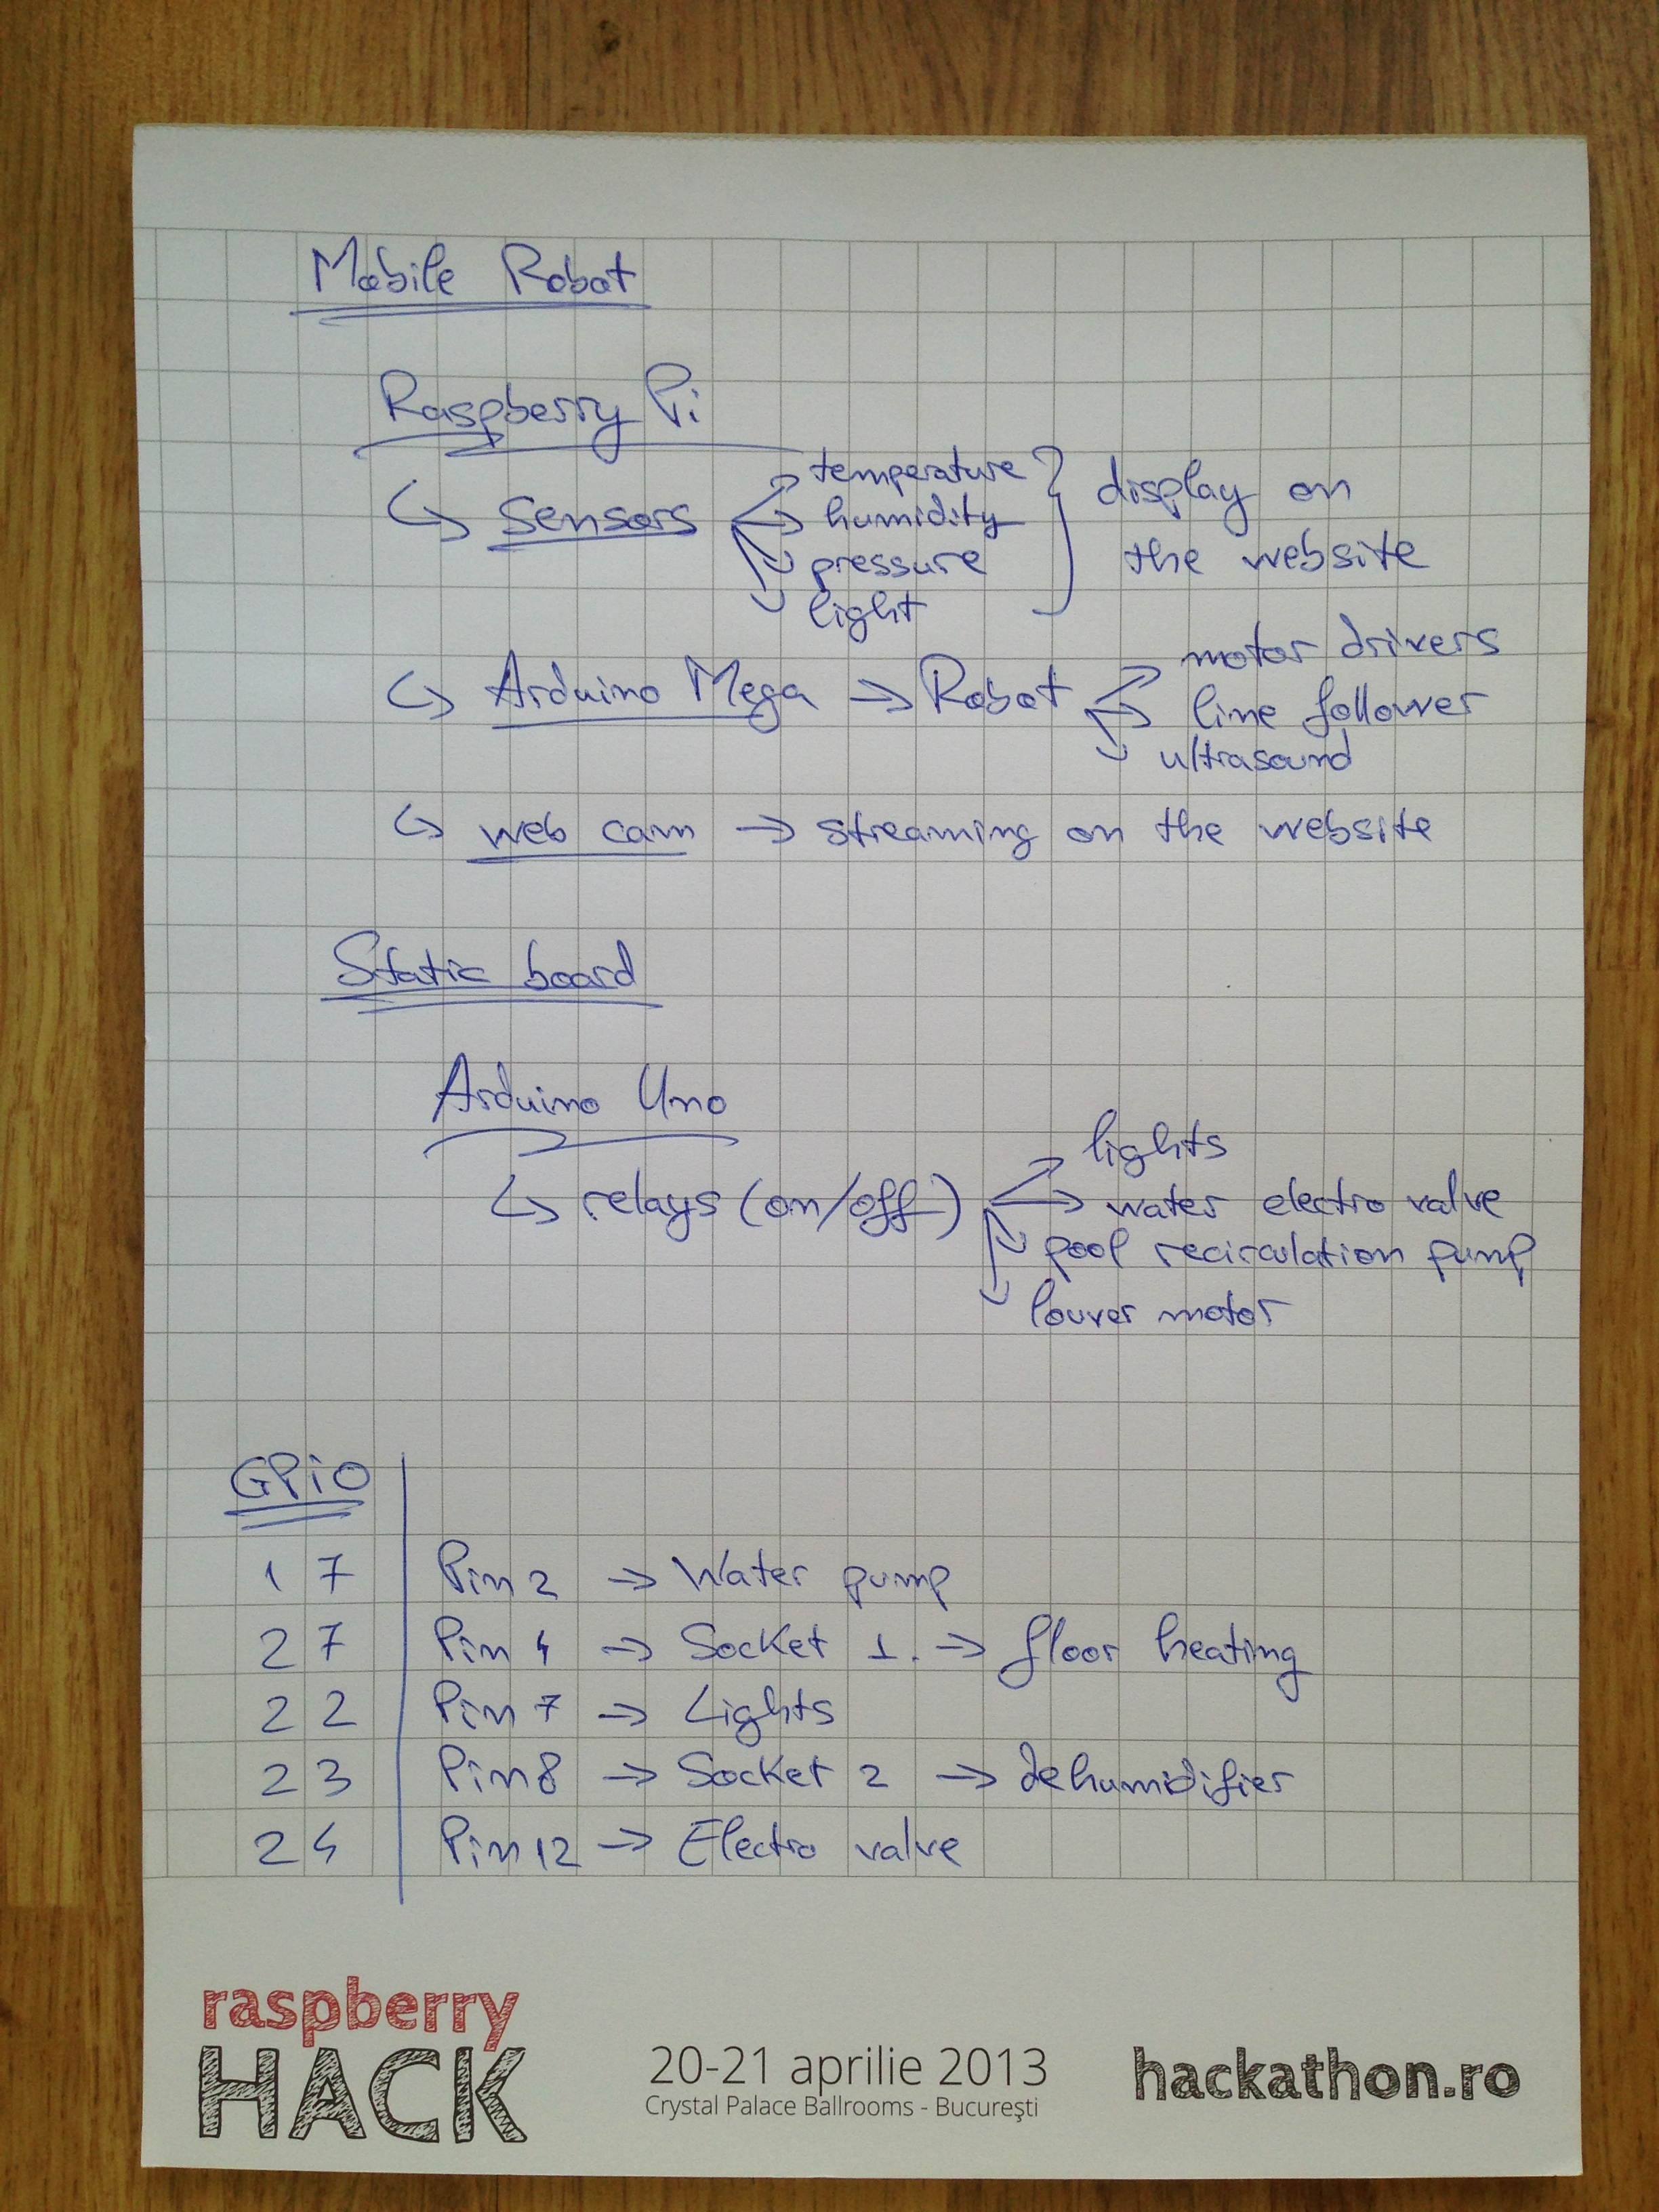 Mobile Robot
Raspberry Pi
↳ sensors → temperature
→ humidity
→ pressure
→ light
} display on
the website
↳ Arduino Mega → Robot → motor drivers
→ line follower
→ ultrasound
↳ web cam → streaming on the website
Static board
Arduino Uno
↳ relays (on/off) → lights
→ water electro valve
→ pool recirculation pump
→ louver motor
GPiO
17 Pin 2 → Water pump
27 Pin 4 → Socket 1. → floor heating
22 Pin 7 → Lights
23 Pin 8 → Socket 2 → dehumidifier
24 Pin 12 → Electro valve
raspberry
HACK
20-21 aprilie 2013
Crystal Palace Ballrooms - Bucureşti
hackathon.ro